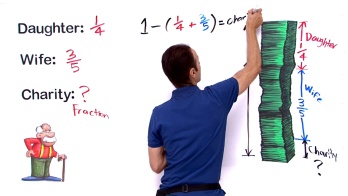 Daughter: 1/4
Wife: 3/5
Charity: ?
Fraction
1 - (1/4 + 3/5) = char
Daughter
1/4
Wife
3/5
Charity
?